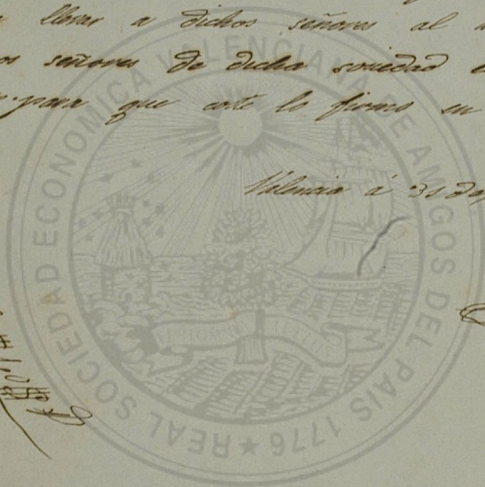 llevar a dichos señores al
señores de dicha sociedad
para que conste lo firmo en
Valencia á 31 de
REAL SOCIEDAD ECONOMICA VALENCIANA DE AMIGOS DEL PAIS 1776